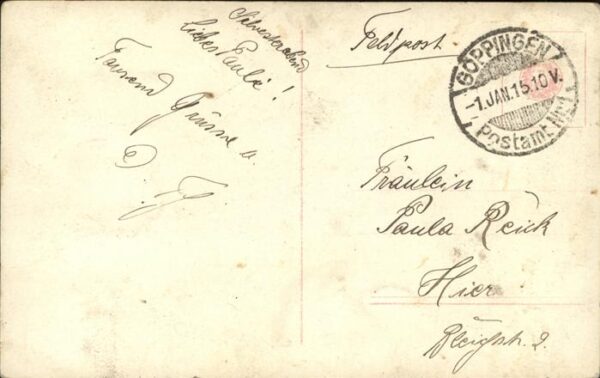 Silvesterabend
Liebes Paule!
Tausend Grüsse u.
Feldpost
GÖPPINGEN
-1.JAN.15.10 V.
Postamt Nr.1
Fräulein
Paula Reick
Hier
Bleichstr. 2.